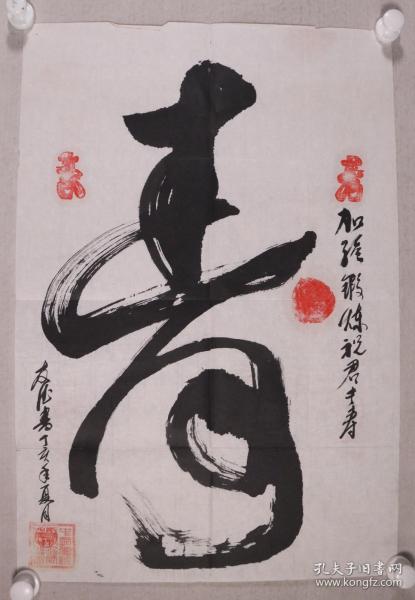 寿
加强锻炼祝君长寿
友德书丁亥年夏月
孔夫子旧书网
www.kongfz.com